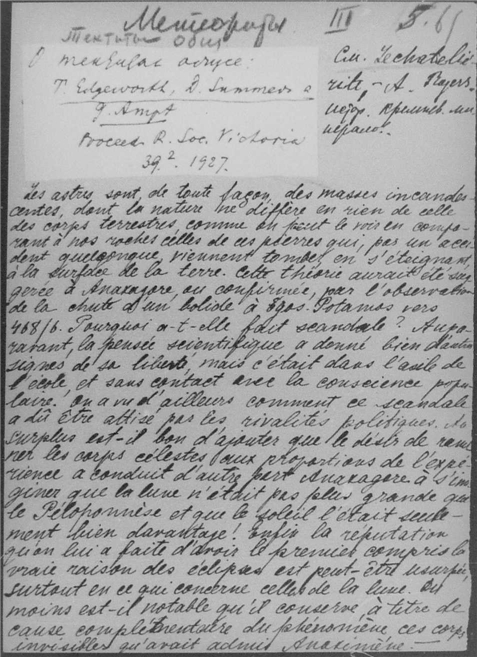 Метеориты III 5.65
Тектиты Общ.
О тектитах
T. Edgeworth, D. Summers
G. Ampt
Proceed. R. Soc. Victoria
39.² 1927.
См. Lechatelié-
rite, - А.
кремнев. ми-
нерало.
Les astres sont, de toute façon, des masses incandes-
centes, dont la nature ne diffère en rien de celle
des corps terrestres, comme on peut le voir en compa-
rant à nos roches celles de ces pierres qui, par un acci-
dent quelconque, viennent tomber, en s'éteignant,
à la surface de la terre. Cette théorie aurait été sug-
gérée à Anaxagore, ou confirmée, par l'observation
de la chute d'un bolide à Egos-Potamos vers
468/6. Pourquoi a-t-elle fait scandale? Aupa-
ravant, la pensée scientifique a donné bien d'autres
signes de sa liberté, mais c'était dans l'asile de
l'école, et sans contact avec la conscience popu-
laire. On a vu d'ailleurs comment ce scandale
a dû être attisé par les rivalités politiques. Au
surplus est-il bon d'ajouter que le désir de rame-
ner les corps célestes aux proportions de l'expé-
rience a conduit d'autre part Anaxagore à s'ima-
giner que la lune n'était pas plus grande que
le Péloponnèse et que le soleil l'était seule-
ment bien davantage! Enfin la réputation
qu'on lui a faite d'avoir le premier compris la
vraie raison des éclipses est peut-être usurpée,
surtout en ce qui concerne celles de la lune. Du
moins est-il notable qu'il conserve, à titre de
cause complémentaire du phénomène, ces corps
invisibles qu'avait admis Anaximène.